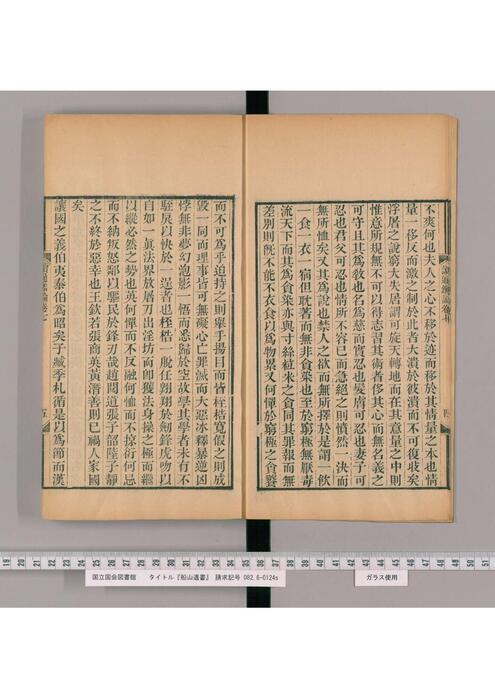 不爽何也夫人之心不移於迹而移於其情量之本也情
量一移反而激之制於此者大潰於彼潰而不可復收矣
浮屠之說窮大失居謂可旋天轉地而在其意量之中則
惟意所規無不可以得志習其術者侈其心而無名義之
可守且其為教也名為慈而實忍也髮膚可忍也妻子可
忍也君父可忍也情所不容已而急絕之則憤然一決而
無所恤矣又其為說也禁人之欲而無所擇於是謂一飲
一食一衣一宿但耽著而無非貪染也至於窮極無厭毒
流天下而其為貪染亦與寸絲粒米之貪同其罪報而無
差別則既不能不衣食以為物累又何憚於窮極之貪饕
而不可為乎迫持之則舉手揚目而皆桎梏寬假之則成
毀一同而理事皆可無礙心亡罪滅而大惡冰釋暴逆凶
悖無非夢幻泡影一悟而悉歸於空故學其學者未有不
駐戾以快於一逞者也桎梏一脫任翱翔於劒鋒虎吻以
自如一真法界放屠刀出淫坊而卽獲法身操之極而繼
以縱必然之勢也英何憚而不反何恤而不掠衍何忌
而不納叛怒鄰以驅民於鋒刃哉趙閱道張子韶陸子靜
之不終於惡幸也王欽若張商英黃潛善則已禍人家國
矣
讓國之義伯夷泰伯為昭矣子臧季札循是以為節而漢
讀通鑑論卷七
五
四
19 20 21 22 23 24 25 26 27 28 29 30 31 32 33 34 35 36 37 38 39 40 41 42 43 44 45 46 47 48 49 50 51
国立国会図書館 タイトル『船山遺書』 請求記号 082.6-0124s
ガラス使用